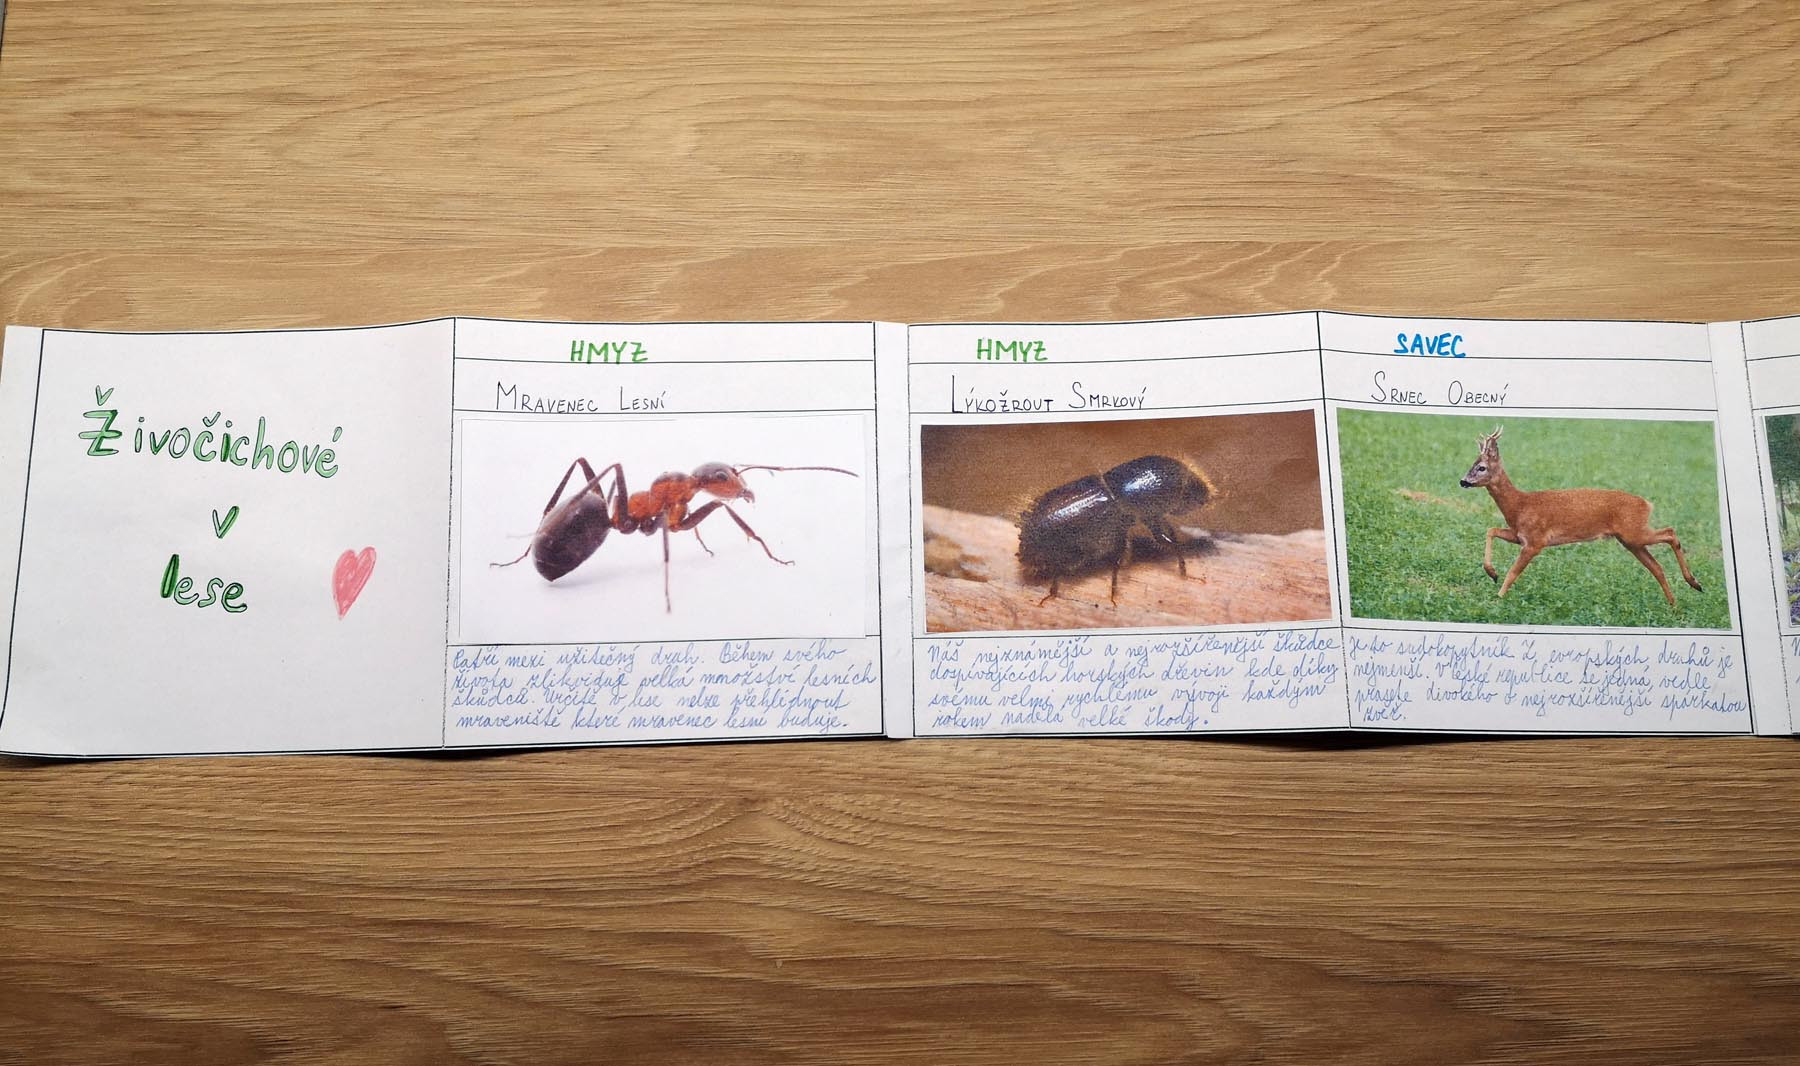 Živočichové
v
lese
HMYZ
Mravenec Lesní
Patří mezi užitečný druh. Během svého
života zlikviduje velká množství lesních
škůdců. Určitě v lese nelze přehlédnout
mraveniště které mravenec lesní buduje.
HMYZ
Lýkožrout Smrkový
Náš nejznámější a nejrozšířenější škůdce
dospívajících horských dřevin kde díky
svému velmi rychlému vývoji každým
rokem nadělá velké škody.
SAVEC
Srnec Obecný
Je to sudokopytník z evropských druhů je
nejmenší. V České republice se jedná vedle
prasete divokého o nejrozšířenější spárkatou
zvěř.